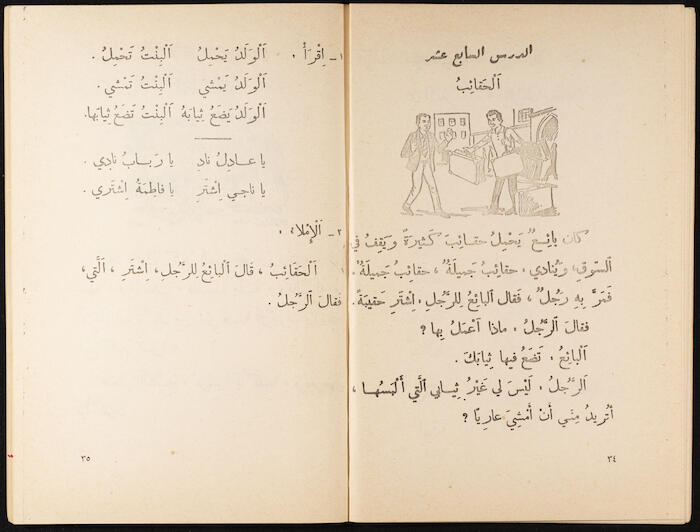 الدرس السابع عشر
اَلْحَقائِبُ
كانَ بائِعٌ يَحْمِلُ حقائِبَ كَثيرَةً ويَقِفُ في
السّوقِ ويُنادي : حقائِبُ جَميلَةٌ ، حقائِبُ جَميلَةٌ .
فَمَرَّ بِهِ رَجُلٌ ، فَقال البائِعُ لِلرَّجُلِ : اِشْتَرِ حَقيبَةً .
فقالَ اَلرَّجُلُ : ماذا اَعْمَلُ بِها ؟
اَلبائِعُ : تَضَعُ فيها ثِيابَكَ .
اَلرَّجُلُ : لَيْسَ لي غَيْرُ ثِيابي اَلَّتي أَلْبَسُها ،
أَتُريدُ مِنّي أَنْ أَمْشِيَ عارِيًا ؟
٣٤
١ـ اِقْرَأْ : اَلوَلَدُ يَحْمِلُ اَلْبِنْتُ تَحْمِلُ .
اَلوَلَدُ يَمْشي اَلْبِنْتُ تَمْشي .
اَلوَلَدُ يَضَعُ ثِيابَهُ اَلْبِنْتُ تَضَعُ ثِيابَها.
يا عـادِلُ نادِ يا رَبـابُ نادِي .
يا ناجي اِشْتَرِ يا فاطِمَةُ اِشْتَري .
٢ـ اَلْإِمْلاءُ :
اَلْحَقائِبُ ، قَالَ اَلْبائِعُ لِلرَّجُلِ ، اِشْتَرِ ، اَلَّتي ،
فَقالَ اَلرَّجُلُ .
٣٥